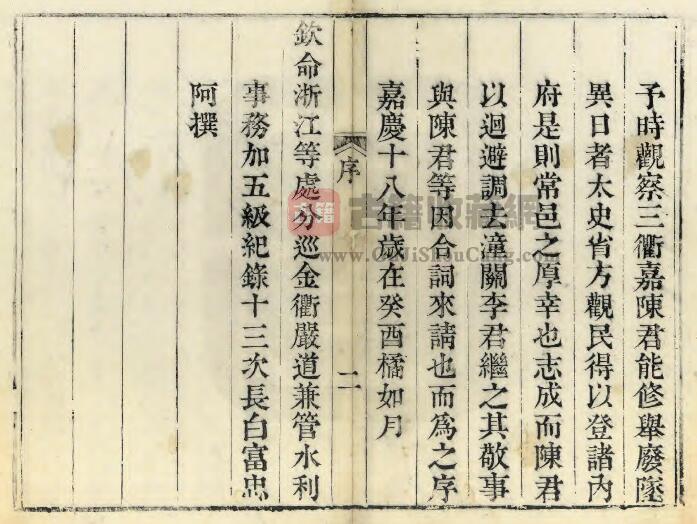 予時觀察三衢嘉陳君能修舉廢墜
異日者太史省方觀民得以登諸內
府是則常邑之厚幸也志成而陳君
以迴避調去潼關李君繼之其敬事
與陳君等因合詞來請也而為之序
嘉慶十八年歲在癸酉橘如月
序
二
欽命浙江等處分巡金衢嚴道兼管水利
事務加五級紀錄十三次長白富忠
阿撰
古籍收藏網
www.GuJiShouCang.com